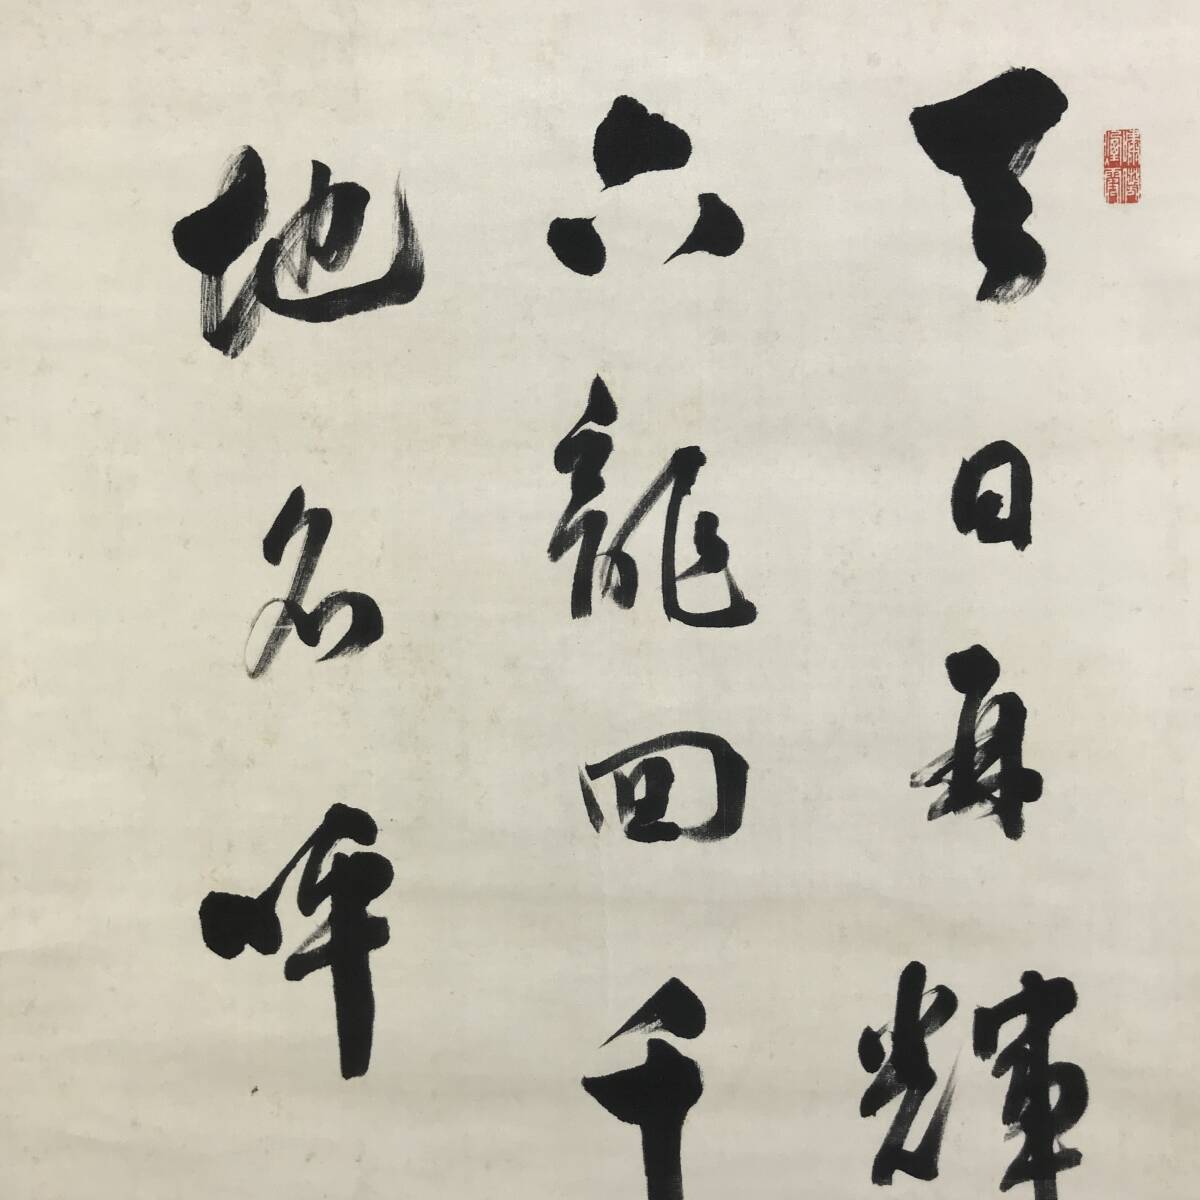 天日再輝
六龍回千
地名呼